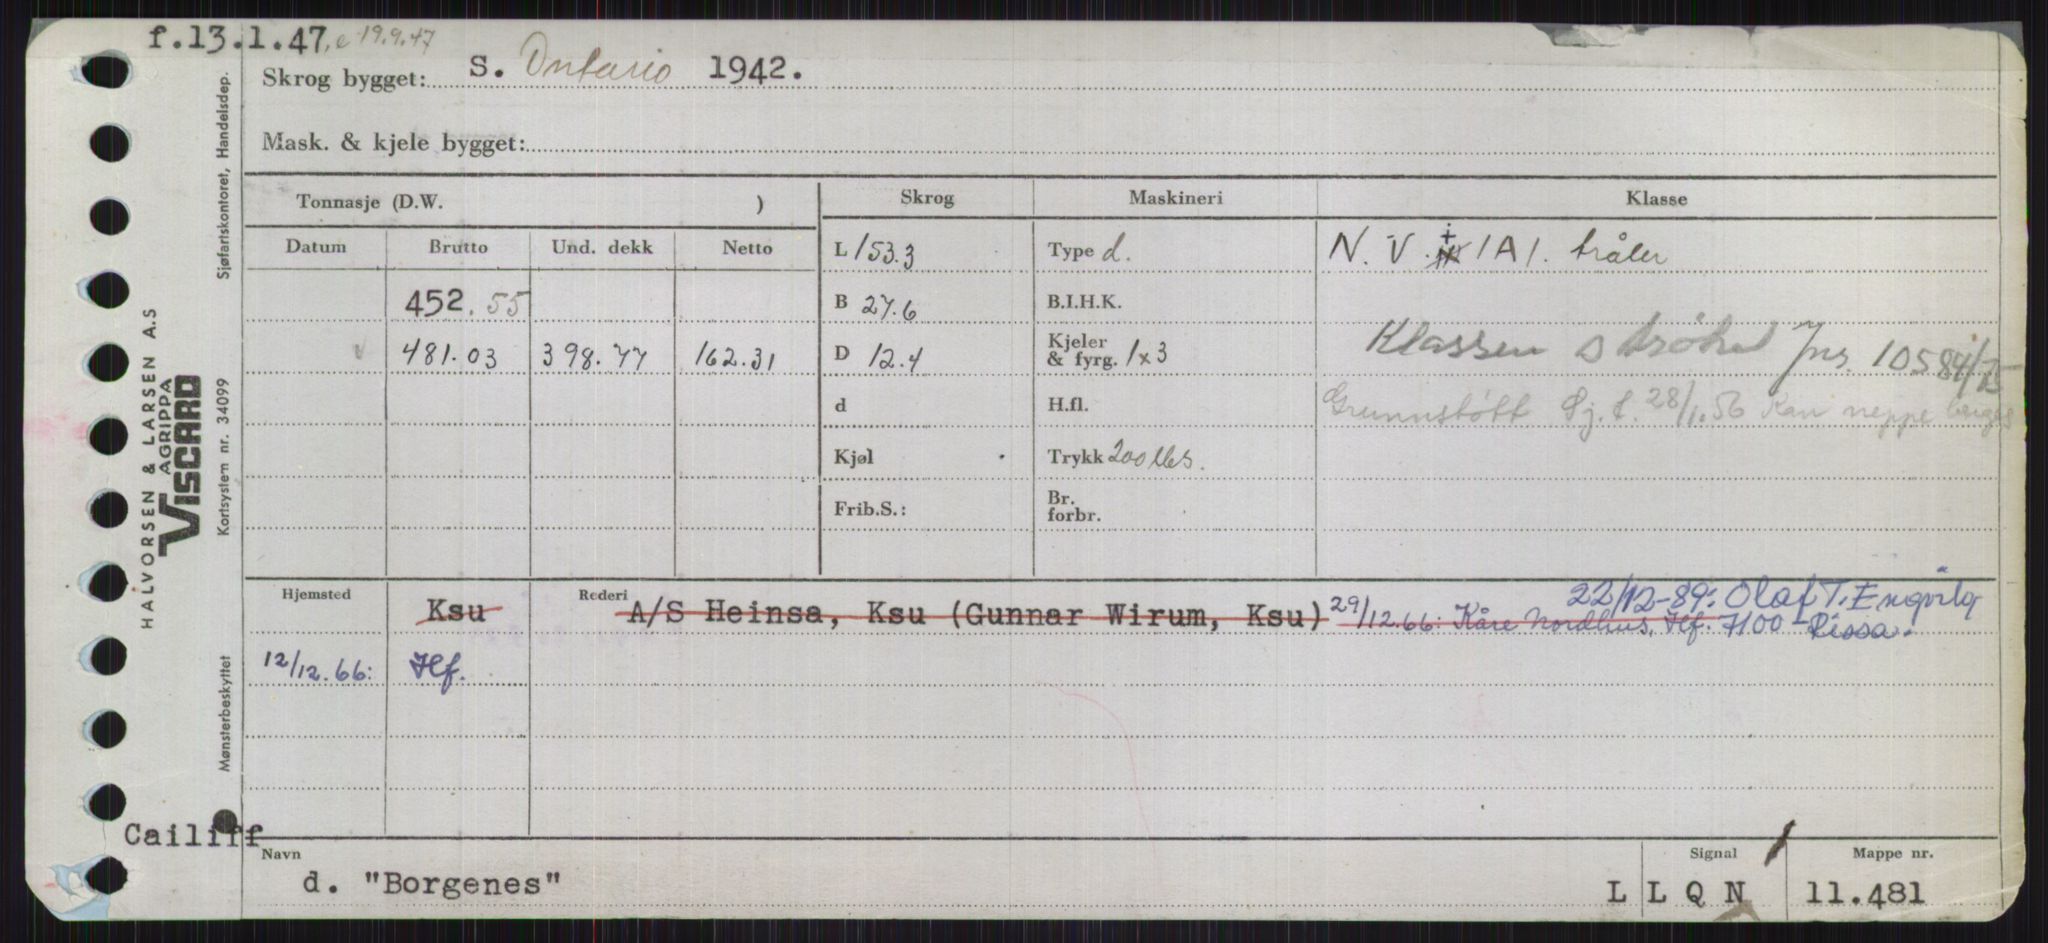 f.13.1.47, e 19.9.47
Skrog bygget: S. Ontario 1942.
Mask. & kjele bygget:
Tonnasje (D.W. )
Skrog Maskineri Klasse
Datum Brutto Und. dekk Netto
L 153.3 Type d. N. V. + 1A1. tråler
452.55
B 27.6 B.I.H.K.
v 481.03 398.77 162.31
D 12.4 Kjeler & fyrg. 1x3
Klassen strøket Jnr. 10584/75
d H.fl.
Grunnstøtt Sj.f. 28/1.56 Kan neppe berges
Kjøl Trykk 200 lbs.
Frib.S.: Br. forbr.
Hjemsted Rederi
Ksu A/S Heinsa, Ksu (Gunnar Wirum, Ksu) 29/12.66: Kåre Nordhus, Hf.
22/12-89: Olaf T. Engvig
7100 Rissa.
12/12.66: Hf.
Cailiff
Navn Signal Mappe nr.
d. "Borgenes" L L Q N 11.481
Sjøfartskontoret, Handelsdep.
HALVORSEN & LARSEN A.S
AGRIPPA
VISCARD
Kortsystem nr. 34099
Mønsterbeskyttet